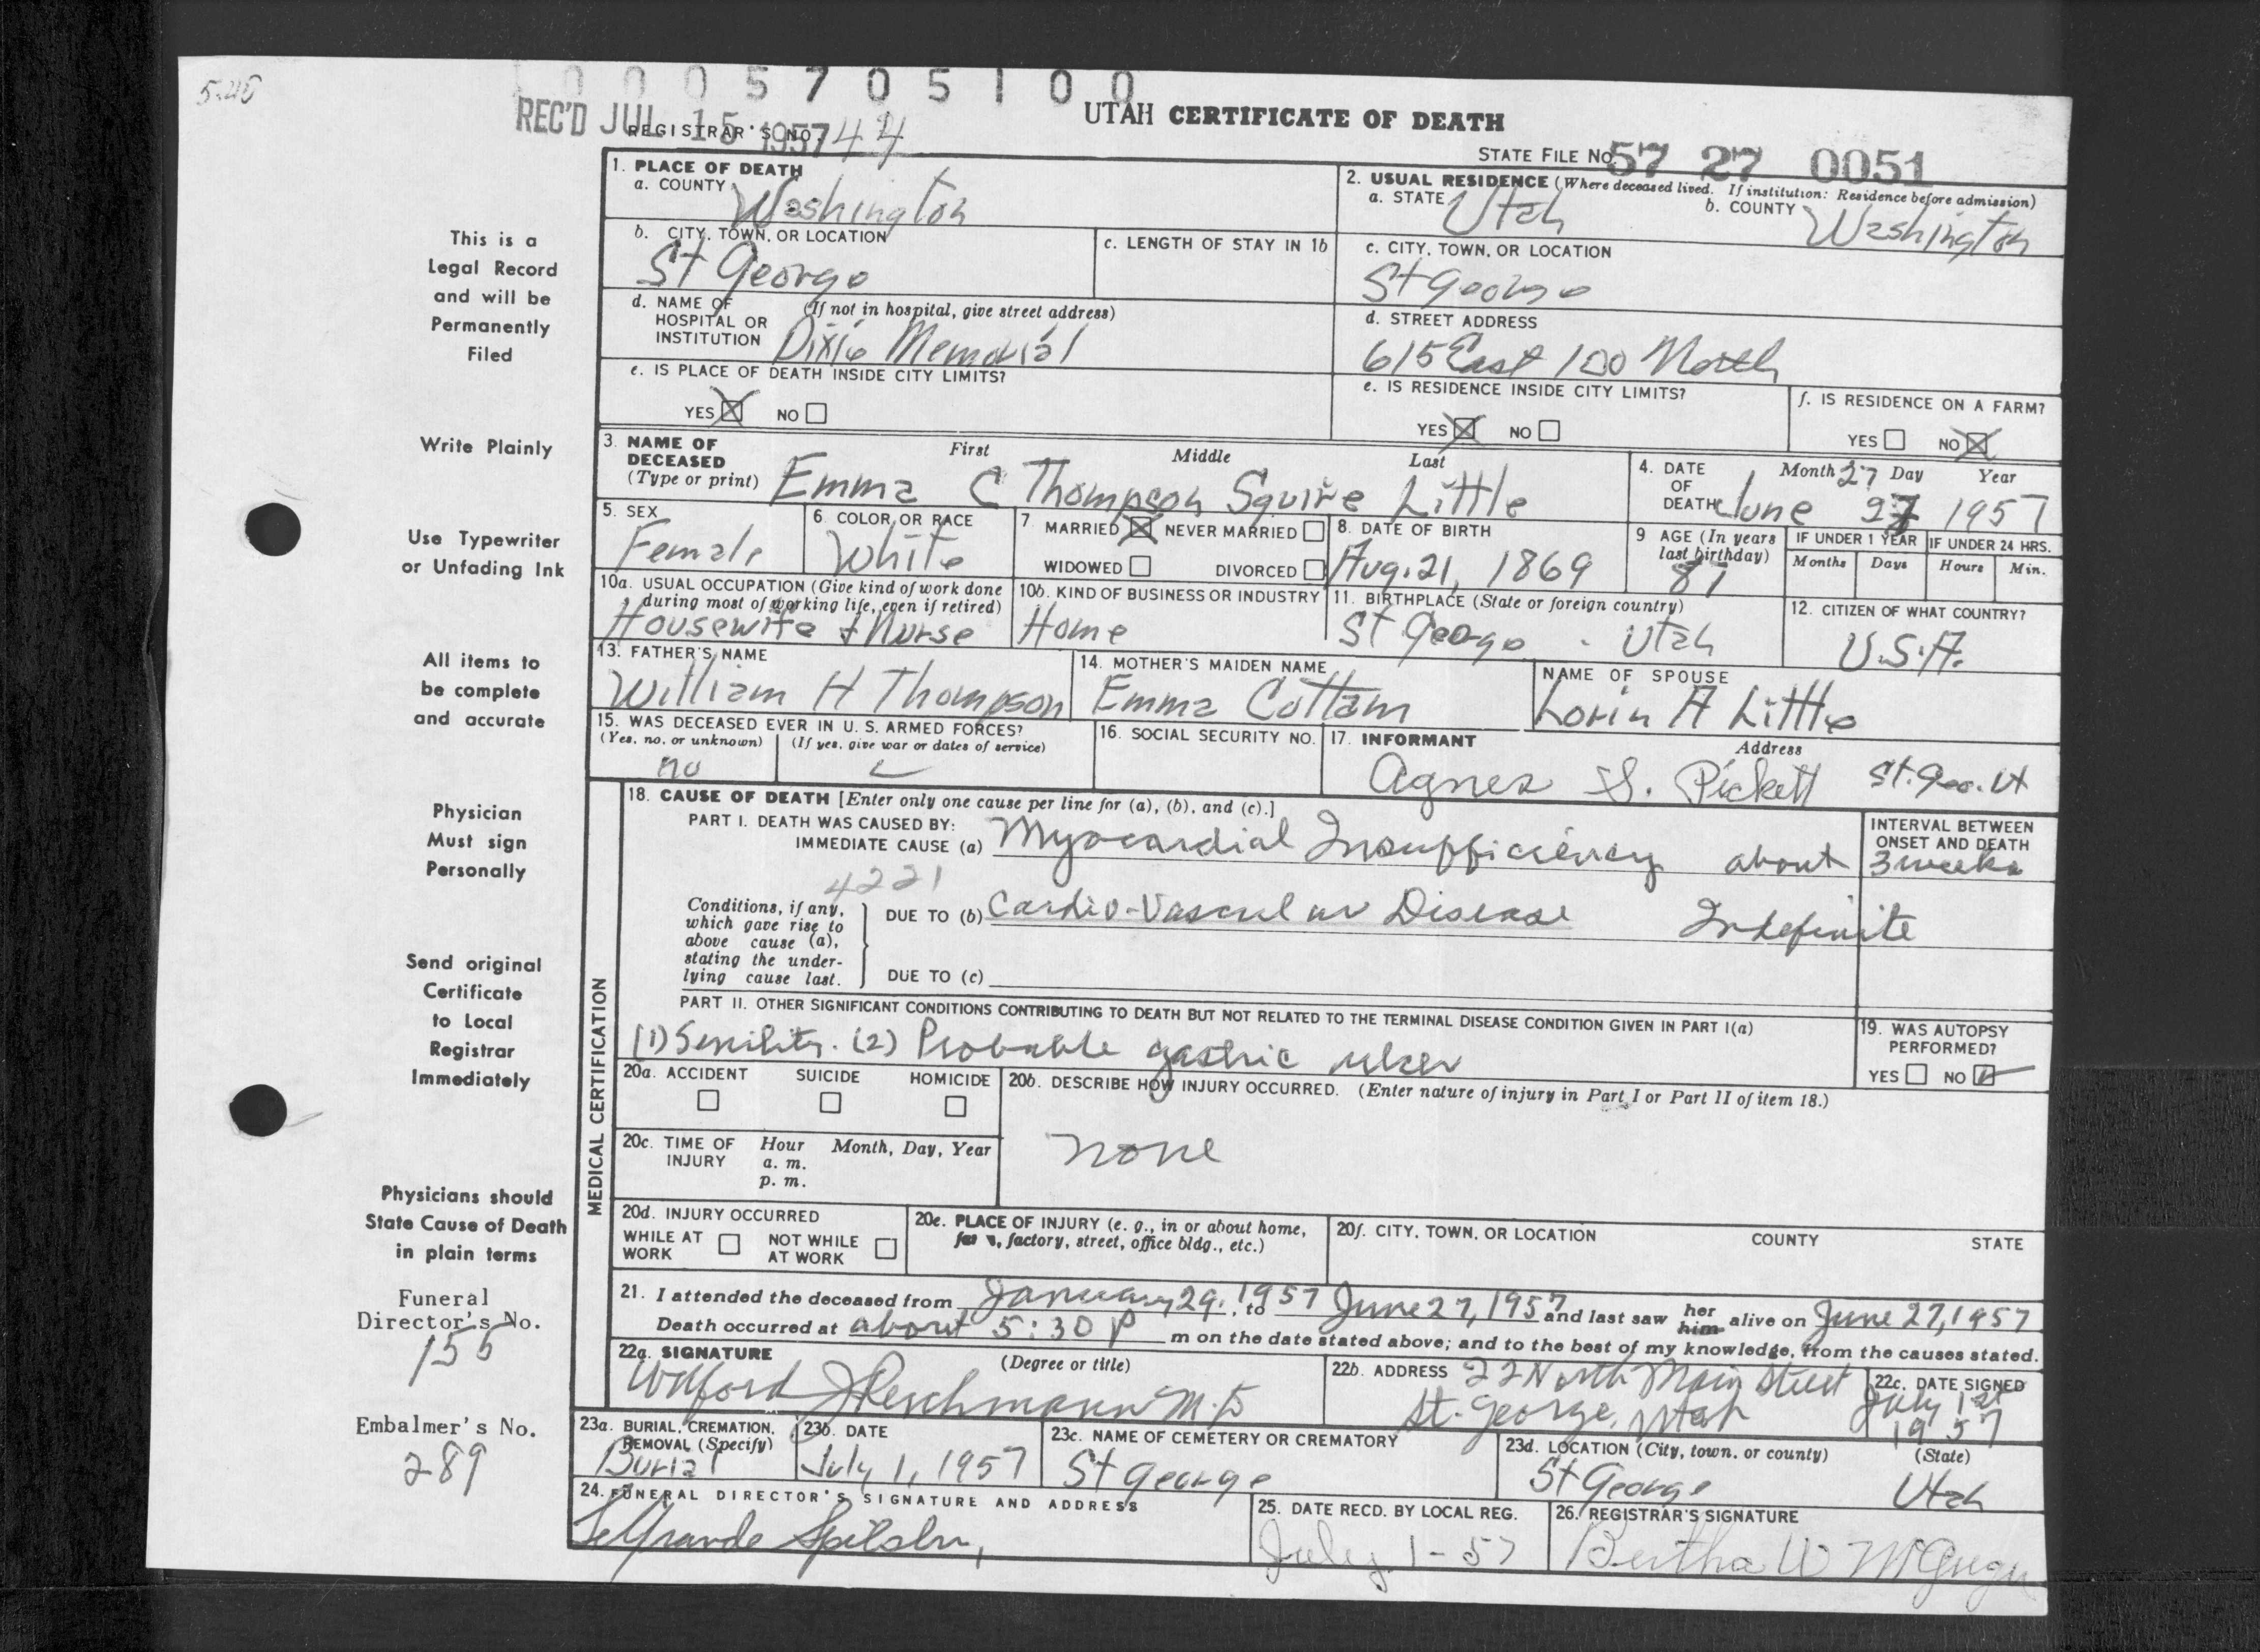 5-40
0005705100
REC'D JUL 15 1957
REGISTRAR'S NO. 44
UTAH CERTIFICATE OF DEATH
STATE FILE NO. 57 27 0051
This is a
Legal Record
and will be
Permanently
Filed
Write Plainly
Use Typewriter
or Unfading Ink
All items to
be complete
and accurate
Physician
Must sign
Personally
Send original
Certificate
to Local
Registrar
Immediately
Physicians should
State Cause of Death
in plain terms
Funeral
Director's No.
155
Embalmer's No.
289
1. PLACE OF DEATH
a. COUNTY Washington
2. USUAL RESIDENCE (Where deceased lived. If institution: Residence before admission)
a. STATE Utah b. COUNTY Washington
b. CITY, TOWN, OR LOCATION
St George
c. LENGTH OF STAY IN 1b
c. CITY, TOWN, OR LOCATION
St George
d. NAME OF (If not in hospital, give street address)
HOSPITAL OR
INSTITUTION Dixie Memorial
d. STREET ADDRESS
615 East 100 North
e. IS PLACE OF DEATH INSIDE CITY LIMITS?
YES NO
e. IS RESIDENCE INSIDE CITY LIMITS?
YES NO
f. IS RESIDENCE ON A FARM?
YES NO
3. NAME OF First Middle Last
DECEASED
(Type or print) Emma C Thompson Squire Little
4. DATE Month 27 Day Year
OF
DEATH June 27 1957
5. SEX
Female
6. COLOR OR RACE
White
7. MARRIED NEVER MARRIED
WIDOWED DIVORCED
8. DATE OF BIRTH
Aug. 21, 1869
9 AGE (In years
last birthday)
87
IF UNDER 1 YEAR
Months Days
IF UNDER 24 HRS.
Hours Min.
10a. USUAL OCCUPATION (Give kind of work done
during most of working life, even if retired)
Housewife & Nurse
10b. KIND OF BUSINESS OR INDUSTRY
Home
11. BIRTHPLACE (State or foreign country)
St George - Utah
12. CITIZEN OF WHAT COUNTRY?
U.S.A.
13. FATHER'S NAME
William H Thompson
14. MOTHER'S MAIDEN NAME
Emma Cottam
NAME OF SPOUSE
Lorin A Little
15. WAS DECEASED EVER IN U. S. ARMED FORCES?
(Yes, no, or unknown) (If yes, give war or dates of service)
no
16. SOCIAL SECURITY NO.
17. INFORMANT Address
Agnes S. Pickett St. Geo. Ut
MEDICAL CERTIFICATION
18. CAUSE OF DEATH [Enter only one cause per line for (a), (b), and (c).]
PART I. DEATH WAS CAUSED BY:
IMMEDIATE CAUSE (a) Myocardial Insufficiency about 3 weeks
INTERVAL BETWEEN
ONSET AND DEATH
4221
Conditions, if any,
which gave rise to
above cause (a),
stating the under-
lying cause last.
DUE TO (b) Cardio-Vascular Disease Indefinite
DUE TO (c)
PART II. OTHER SIGNIFICANT CONDITIONS CONTRIBUTING TO DEATH BUT NOT RELATED TO THE TERMINAL DISEASE CONDITION GIVEN IN PART I(a)
(1) Senility. (2) Probable gastric ulcer
19. WAS AUTOPSY
PERFORMED?
YES NO
20a. ACCIDENT SUICIDE HOMICIDE
20b. DESCRIBE HOW INJURY OCCURRED. (Enter nature of injury in Part I or Part II of item 18.)
none
20c. TIME OF Hour Month, Day, Year
INJURY a. m.
p. m.
20d. INJURY OCCURRED
WHILE AT NOT WHILE
WORK AT WORK
20e. PLACE OF INJURY (e. g., in or about home,
farm, factory, street, office bldg., etc.)
20f. CITY, TOWN, OR LOCATION COUNTY STATE
21. I attended the deceased from January 29, 1957, to June 27, 1957 and last saw her him alive on June 27, 1957
Death occurred at about 5:30 P m on the date stated above; and to the best of my knowledge, from the causes stated.
22a. SIGNATURE (Degree or title)
Wilford J Reichmann M.D
22b. ADDRESS 22 North Main Street
St. George, Utah
22c. DATE SIGNED
July 1st
1957
23a. BURIAL, CREMATION,
REMOVAL (Specify)
Burial
23b. DATE
July 1, 1957
23c. NAME OF CEMETERY OR CREMATORY
St George
23d. LOCATION (City, town, or county) (State)
St George Utah
24. FUNERAL DIRECTOR'S SIGNATURE AND ADDRESS
25. DATE RECD. BY LOCAL REG.
July 1-57
26. REGISTRAR'S SIGNATURE
Bertha W